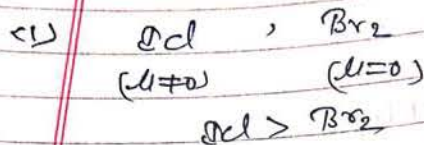 (1) ICl , Br₂
(μ≠0) (μ=0)
ICl > Br₂